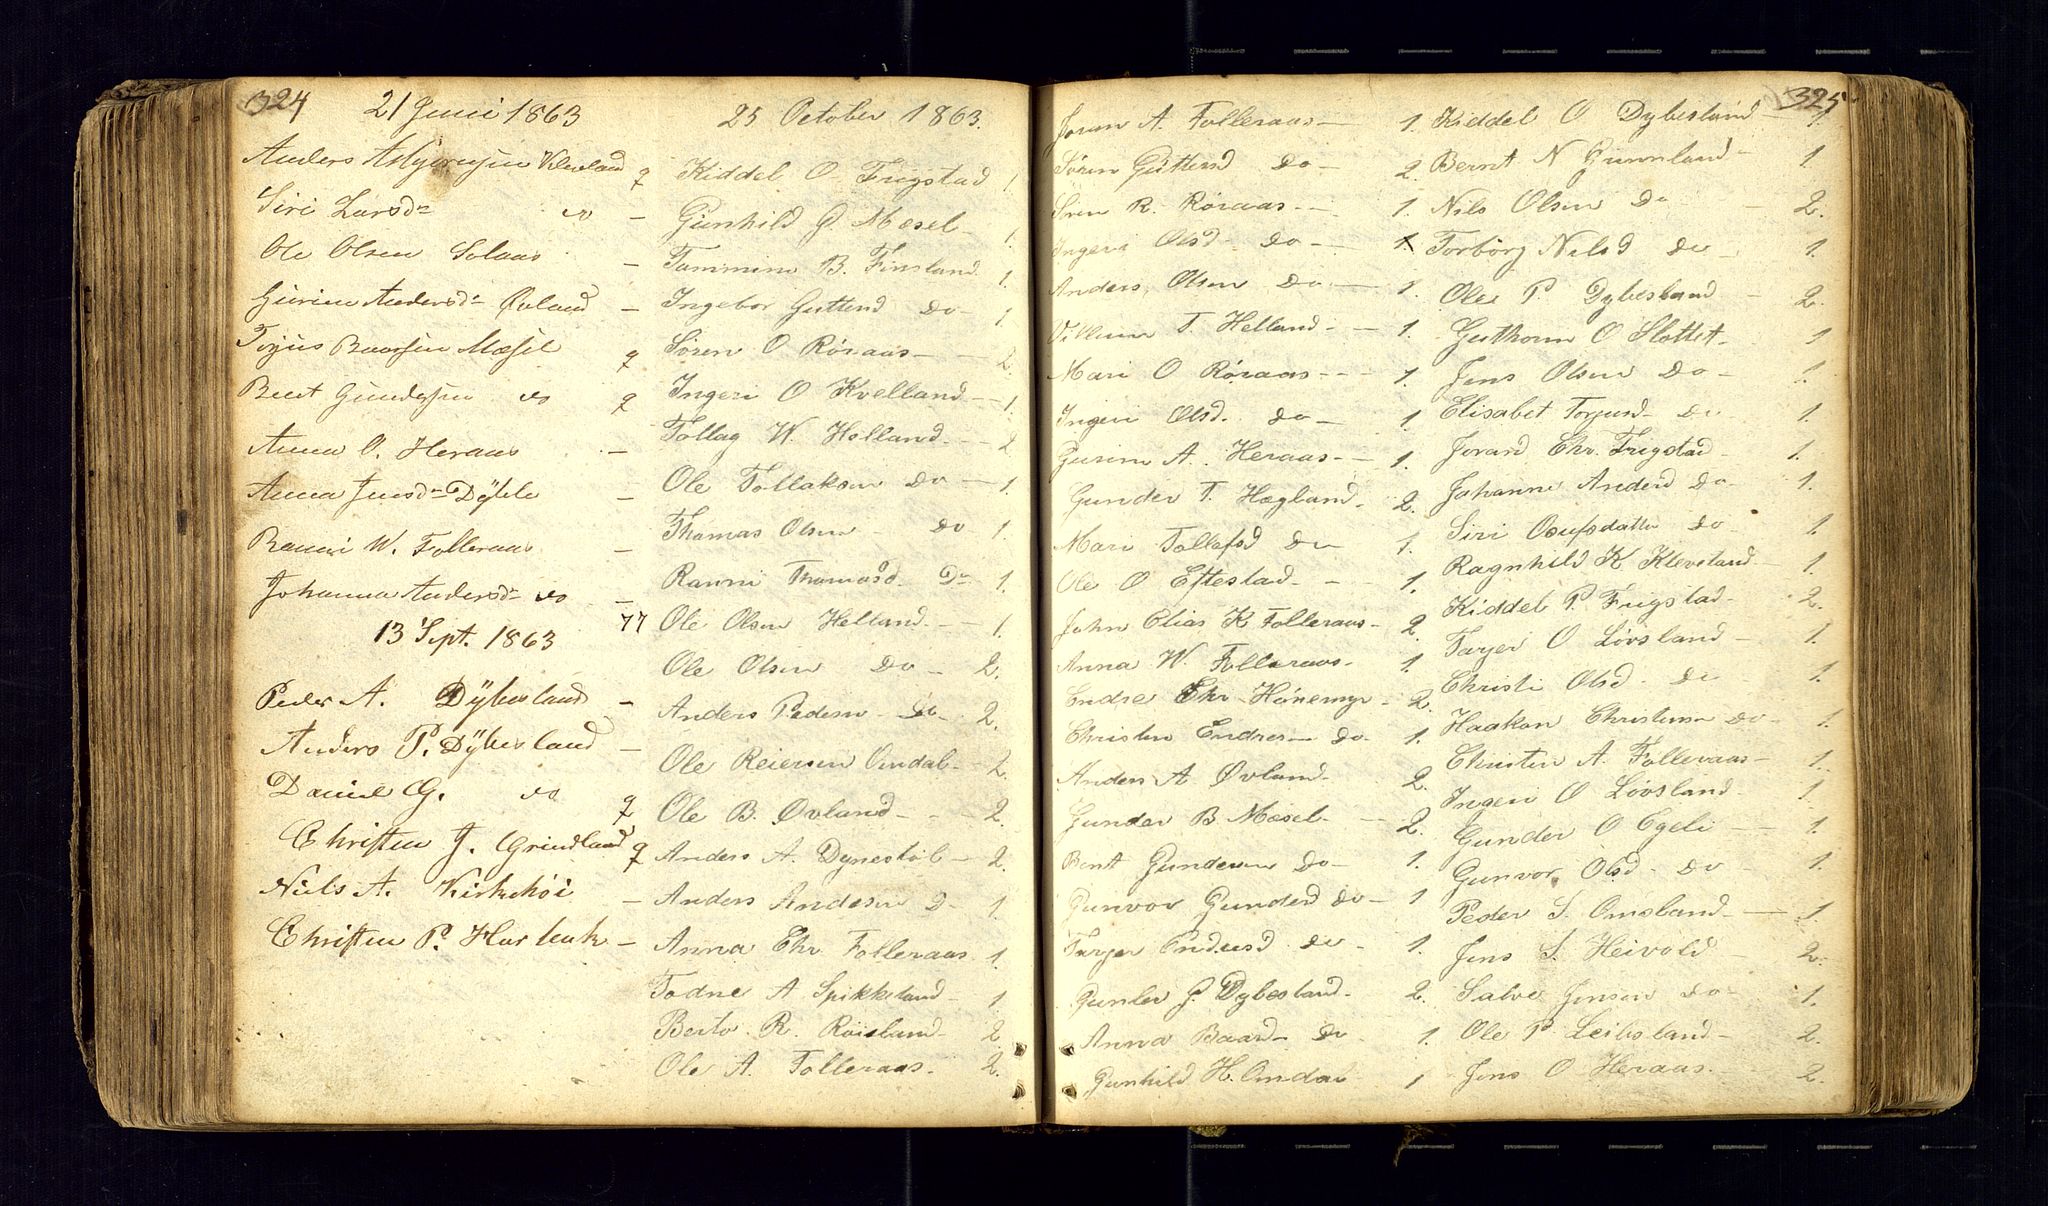 324
21 Juni 1863
Anders Asgrimsen Kleveland q
Siri Larsdr do -
Ole Olsen Solaas -
Gurine Andersdr Øvland -
Terjus Baarsen Mæsel q
Bent Gundersen do q
Anna O. Heraas -
Anna Jensdr Dÿbesl -
Ranni W. Folleraas -
Johanna Andersdr do -
77
13 Sept. 1863
Peder A. Dÿbesland -
Anders P. Dÿbesland -
Daniel G. do q
Christen J. Grindland q
Niels A. Kirkehøi -
Christen P. Harbak -
25 October 1863.
Kiddel O Frigstad 1.
Gunhild G Mæsel - 1.
Tammine B. Finsland 1.
Ingebor Guttensd Do - 1.
Søren O Røraas - 2.
Ingeri O Kvelland - 1.
Tollag W. Helland - 2
Ole Tollaksen Do - 1.
Thomas Olsen - Do 1.
Ranni Thomasd. Do 1.
Ole Olsen Helland - 1.
Ole Olsen Do - 2.
Anders Pedersen - Do - 2.
Ole Reiersen Omdal - 2.
Ole B. Øvland - - 2.
Anders A. Dynestøl - 2.
Anders Andersen D - 1.
Anna Chr Folleraas 1.
Todne A Spikkeland - 1
Berto R. Røisland - 2
Ole A. Folleraas - 2.
Joran A. Folleraas - 1.
Søren Guttensd Do - 2.
Sven R. Røraas - 1.
Ingeri Olsd Do - 1.
Anders Olsen Do - 1.
Villum T. Helland - 1.
Mari O Røraas - 1.
Ingeri Olsd. Do - 1
Gurine A. Heraas - 1.
Gunder T. Hægland. 2.
Mari Tollefsd Do 1.
Ole O Eftestad - 1.
John Elias K Folleraas - 2
Anna W. Folleraas - 1.
Endre Chr Hønemyr - 2.
Christen Endresen Do - 1.
Anders A Øvland - 2.
Gunder B Mæsel - 2.
Bent Gundersen Do - 1.
Gunvor Gundersd Do - 1
Tarjer Endresd Do - 1.
Gunder G. Dybesland - 2.
Anna Baard- Do 1.
Gunhild H. Omdal 1
325
Kiddel O Dybesland - 1.
Bernt N Grunnland - 1.
Nils Olsen Do - 2.
Torborg Nilsd Do - 1.
Ole P. Dybesland - 2.
Guthorm O Slottet - 1
Jens Olsen Do - 1.
Elisabet Torjusd - Do 1.
Jorand Chr. Frigstad - 1.
Johanne Andersd Do - 1.
Siri Osufsdatter Do - 1.
Ragnhild K Kleveland - 1.
Kiddel P. Frigstad - 2.
Tarjer O Løvsland - 1.
Christi Olsd - Do - 1.
Haakon Christensen Do - 1.
Christen A. Folleraas - 1.
Ingeri O Løvsland - 1
Gunder O Egeli - 1.
Gunvor Olsd - Do - 1.
Peder S. Omsland - 1.
Jens S. Heivold - 2.
Salve Jensen Do - 1.
Ole P. Leibsland - 2.
Jens O Heraas - 2.